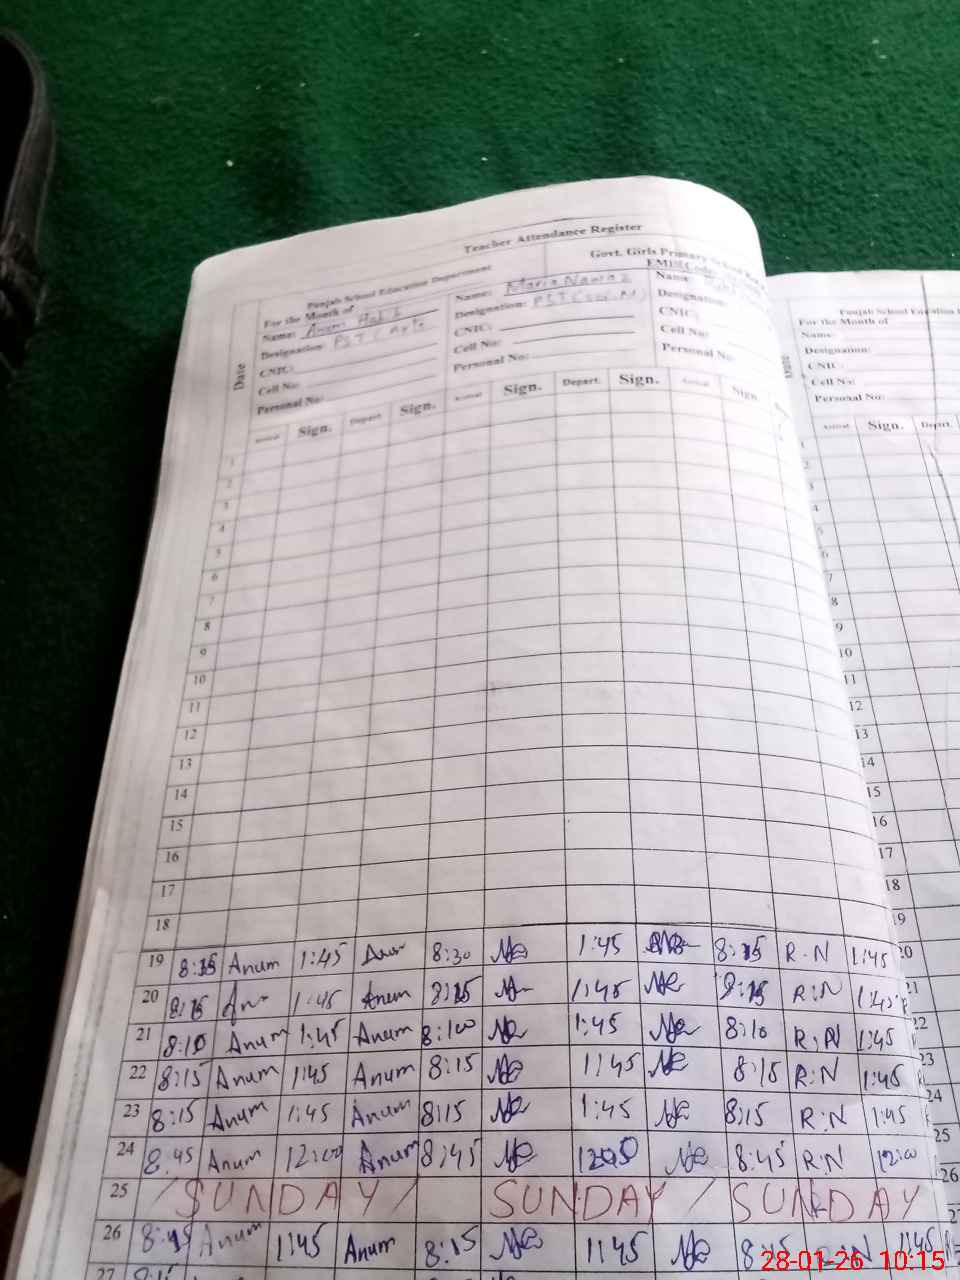 Teacher Attendance Register
Punjab School Education Department
Govt. Girls Primary School
EMIS Code:
For the Month of
Name: Anum Habib
Designation: PST (Arts
CNIC:
Cell No:
Personal No:
Name: Maria Nawaz
Designation: PST (Sci. M)
CNIC:
Cell No:
Personal No:
Name:
Designation:
CNIC:
Cell No:
Personal No:
Date
Arrival Sign. Depart. Sign. Arrival Sign. Depart. Sign. Arrival Sign.
1
2
3
4
5
6
7
8
9
10
11
12
13
14
15
16
17
18
19 8:15 Anum 1:45 8:30 1:45 8:15 R.N 1:45
20 8:15 1:45 Anum 8:15 1:45 8:15 R:N 1:45
21 8:10 Anum 1:45 Anum 1:45 8:10 R:N 1:45
22 8:15 Anum 1:45 Anum 8:15 1:45 8:15 R:N 1:45
23 8:15 Anum 1:45 Anum 8:15 1:45 8:15 R:N 1:45
24 8:45 Anum 12:00 Anum 8:45 8:45 R:N 12:00
25 SUNDAY / SUNDAY / SUNDAY
26 Anum 1:45 Anum 8:15 1:45 1:45
27
Punjab School Education
For the Month of
Name:
Designation:
CNIC:
Cell No:
Personal No:
Date
Arrival Sign. Depart.
1
2
3
4
5
6
7
8
9
10
11
12
13
14
15
16
17
18
19
20
21
22
23
24
25
26
27
28-01-26 10:15